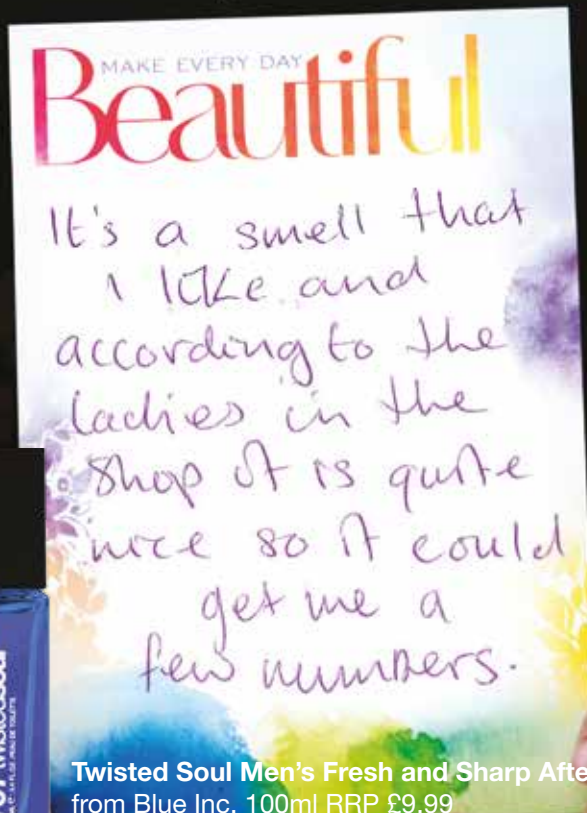 MAKE EVERY DAY
Beautiful
It's a smell that
I like and
according to the
ladies in the
shop it is quite
nice so it could
get me a
few numbers.
Twisted Soul Men's Fresh and Sharp Afte
from Blue Inc. 100ml RRP £9.99